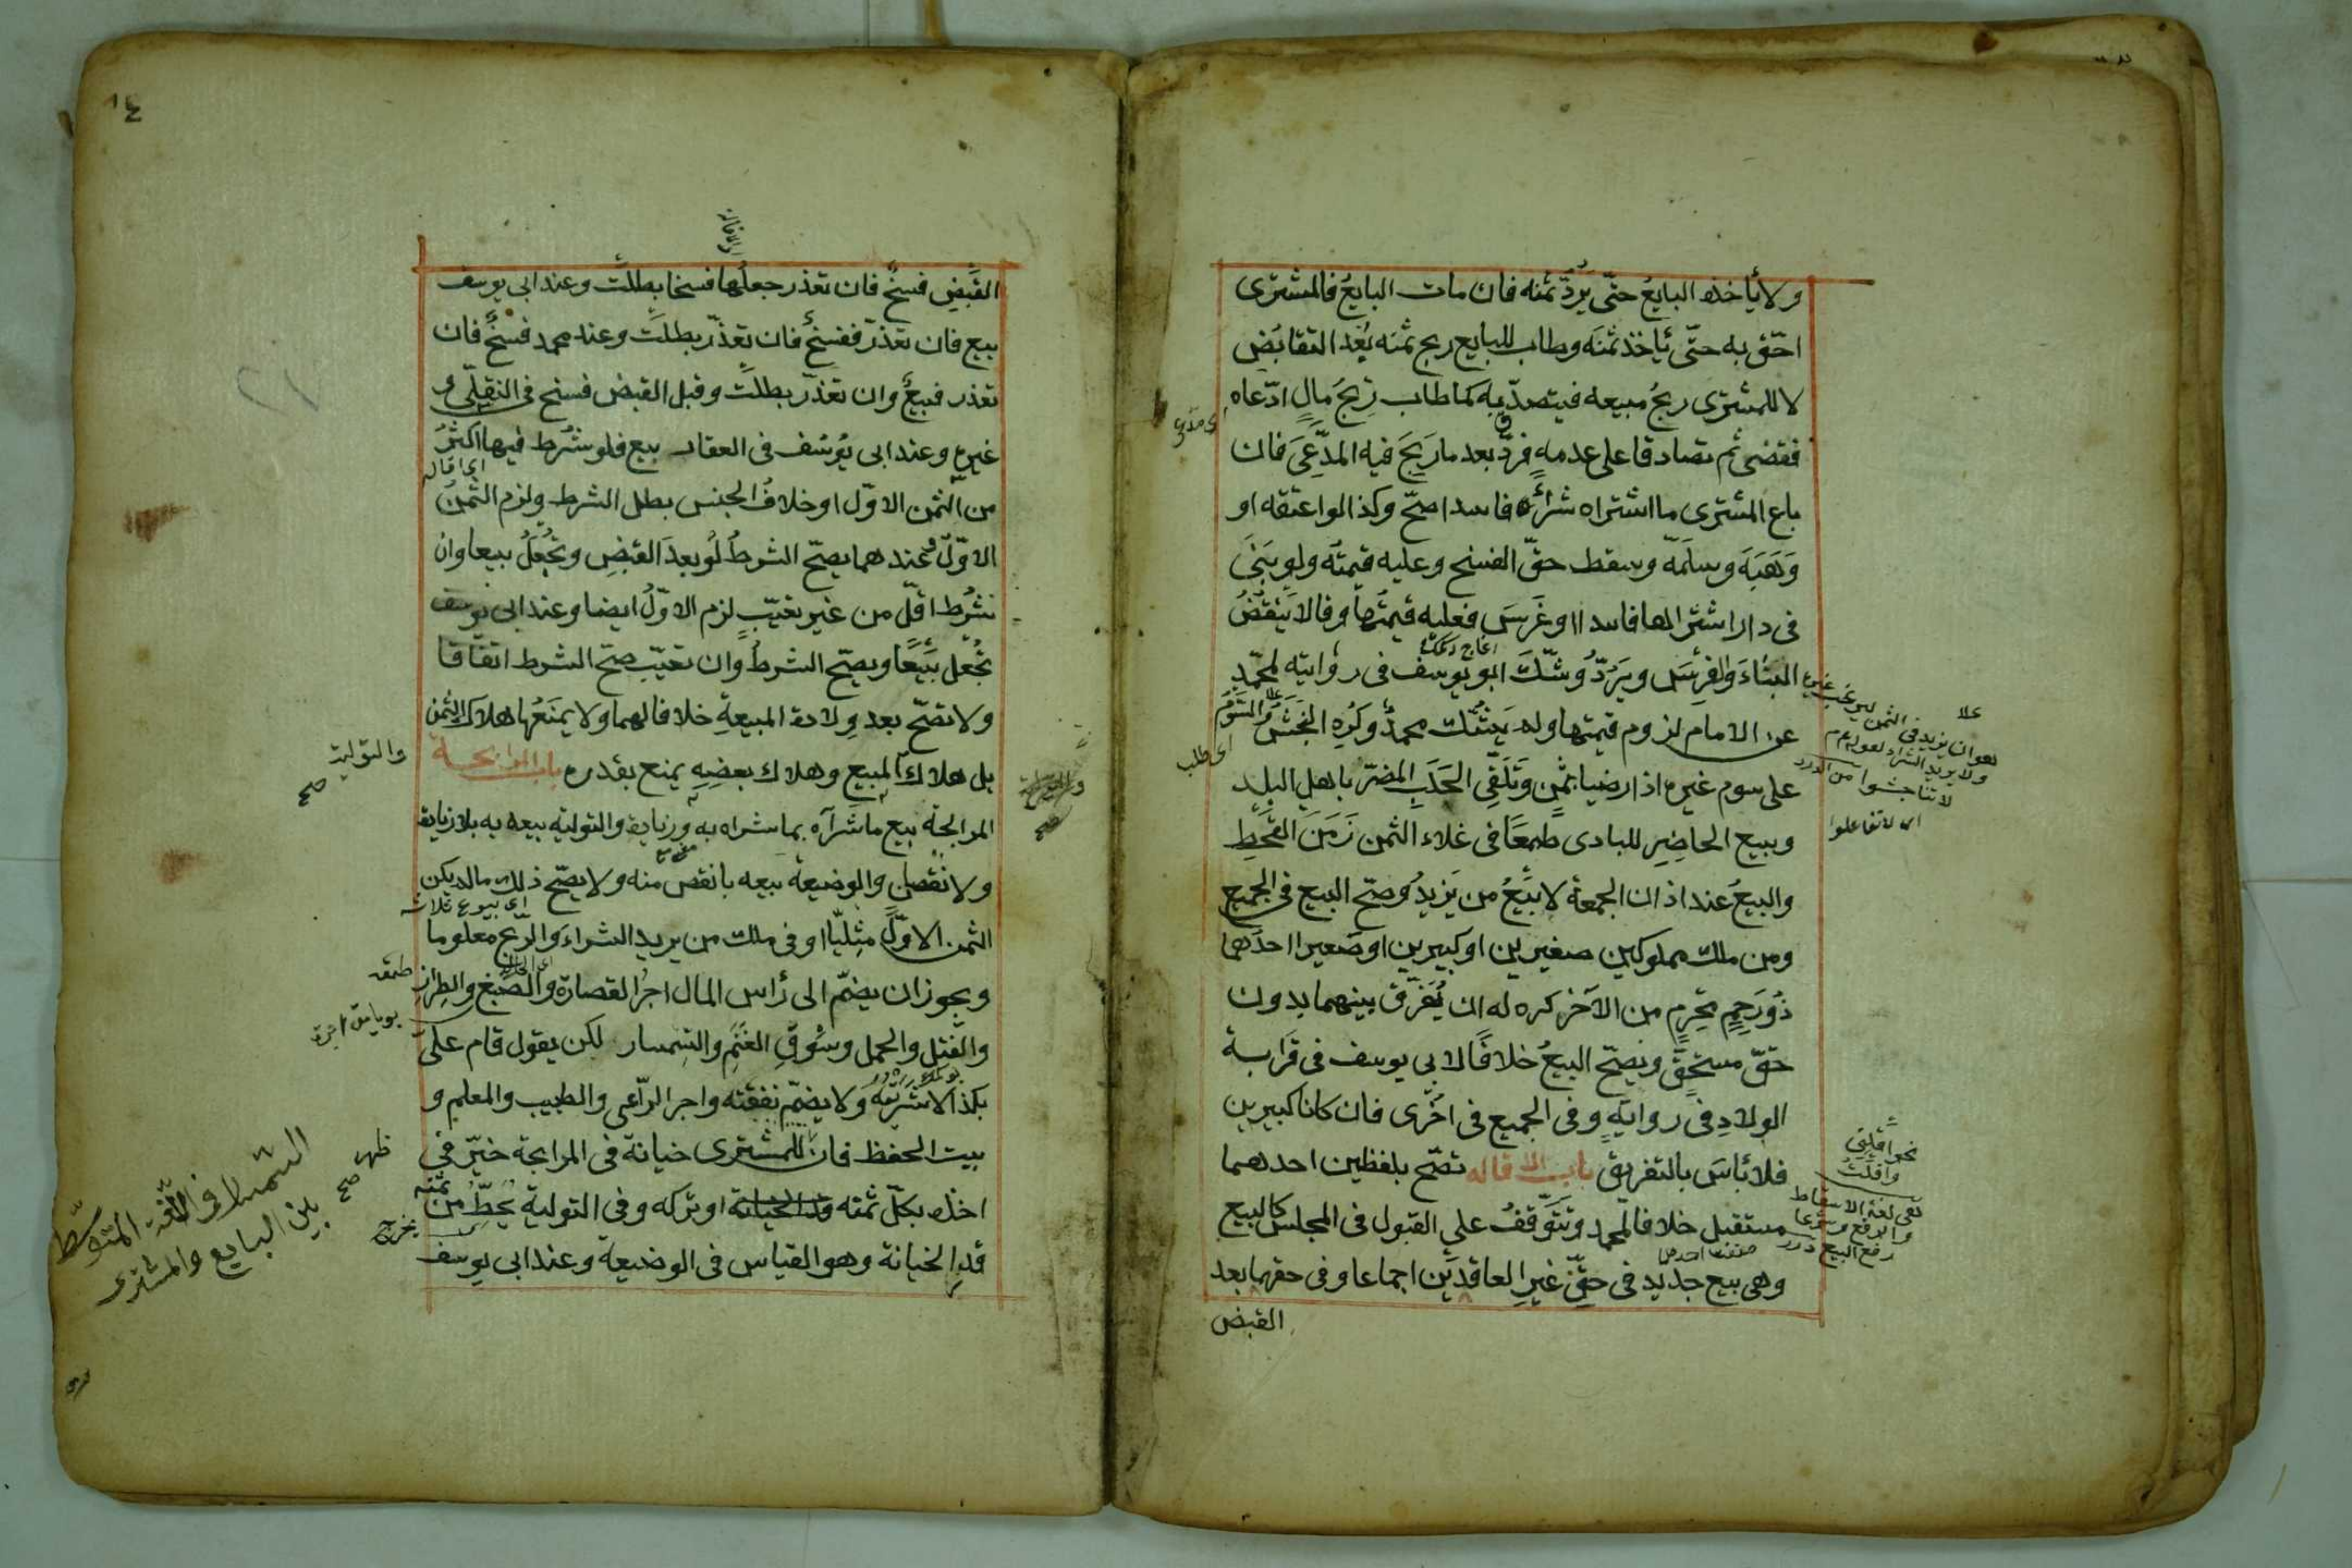 ولا يأخذه البايع حتّى يردّ ثمنه فان مات البايع فالمشترى
احقّ به حتّى يأخذ ثمنه وطاب للبايع ربح ثمنه بعد التقابض
لا للمشترى ربح مبيعه فيتصدّق به كما طاب ربح مال ادّعاه
فقضى ثم تصادقا على عدمه فردّ بعد ما ربح فيه المدّعى فان
باع المشترى ما اشتراه شراء فاسدا صحّ وكذا لو اعتقه او
وهبه وسلّمه وسقط حقّ الفسخ وعليه قيمته ولو بنى
فى دار اشتراها فاسدا او غرس فعليه قيمتها وقالا ينقض
البناء والغرس ويردّ وشكّ ابو يوسف فى روايته لمحمّد
عن الامام لزوم قيمتها ولم يشكّ محمد وكره النجش والسّوم
على سوم غيره اذا رضيا بثمن وتلقّى الجلب المضرّ باهل البلد
وبيع الحاضر للبادى طمعا فى غلاء الثمن زمن القحط
والبيع عند اذان الجمعة لا بيع من يزيد وصحّ البيع فى الجميع
ومن ملك مملوكين صغيرين او كبيرين او صغيرا احدهما
ذو رحم محرم من الآخر كره له ان يفرّق بينهما بدون
حقّ مستحقّ ويصحّ البيع خلافا لابى يوسف فى قرابة
الولاد فى رواية وفى الجميع فى اخرى فان كانا كبيرين
فلا بأس بالتفريق باب الاقاله تصحّ بلفظين احدهما
مستقبل خلافا لمحمد وتتوقّف على القبول فى المجلس كالبيع
وهى بيع جديد فى حقّ غير العاقدين اجماعا وفى حقهما بعد
القبض
اى وطلب
علا
هو ان يزيد فى الثمن ليرغب غيره
ولا يريد الشراء لقوله عم
لا تناجشوا من الدرر
اى لا تفاعلوا
نحو اقلنى
واقلت
هى لغة الاسقاط
والرفع وشرعا
رفع البيع درر
٨٤
القبض فسخ فان تعذر جعلها فسخا بطلت وعند ابى يوسف
بيع فان تعذّر ففسخ فان تعذّر بطلت وعند محمد فسخ فان
تعذر فبيع وان تعذّر بطلت وقبل القبض فسخ فى النقلى و
غيره وعند ابى يوسف فى العقار بيع فلو شرط فيها اكثر
من الثمن الاوّل او خلاف الجنس بطل الشرط ولزم الثمن
الاوّل وعندهما يصحّ الشرط لو بعد القبض وتجعل بيعا وان
شرط اقلّ من غير تعيّب لزم الاوّل ايضا وعند ابى يوسف
تجعل بيعا ويصحّ الشرط وان تعيّب صحّ الشرط اتفاقا
ولا تصحّ بعد ولادة المبيعة خلافا لهما ولا يمنعها هلاك الثمن
بل هلاك المبيع وهلاك بعضه يمنع بقدره باب المرابحة
المرابحة بيع ما شراه بما شراه به وزيادة والتولية بيعه به بلا زيادة
ولا نقصان والوضيعة بيعه بانقص منه ولا يصحّ ذلك مالم يكن
الثمن الاوّل مثليّا او فى ملك من يريد الشراء والربح معلوما
ويجوز ان يضمّ الى رأس المال اجر القصارة والصّبغ والطراز
والفتل والحمل وسوق الغنم والسمسار لكن يقول قام علىّ
بكذا لا اشتريته ولا يضمّ نفقته واجر الرّاعى والطبيب والمعلم و
بيت الحفظ فان ظهر للمشترى خيانة فى المرابحة خيّر فى
اخذه بكلّ ثمنه او تركه وفى التولية يحطّ من ثمنه
قدر الخيانة وهو القياس فى الوضيعة وعند ابى يوسف
اى اقاله
والتولية صح
اى بيوع ثلاثة
ظهر صح
السمسار فى اللغة المتوسّط
بين البايع والمشترى